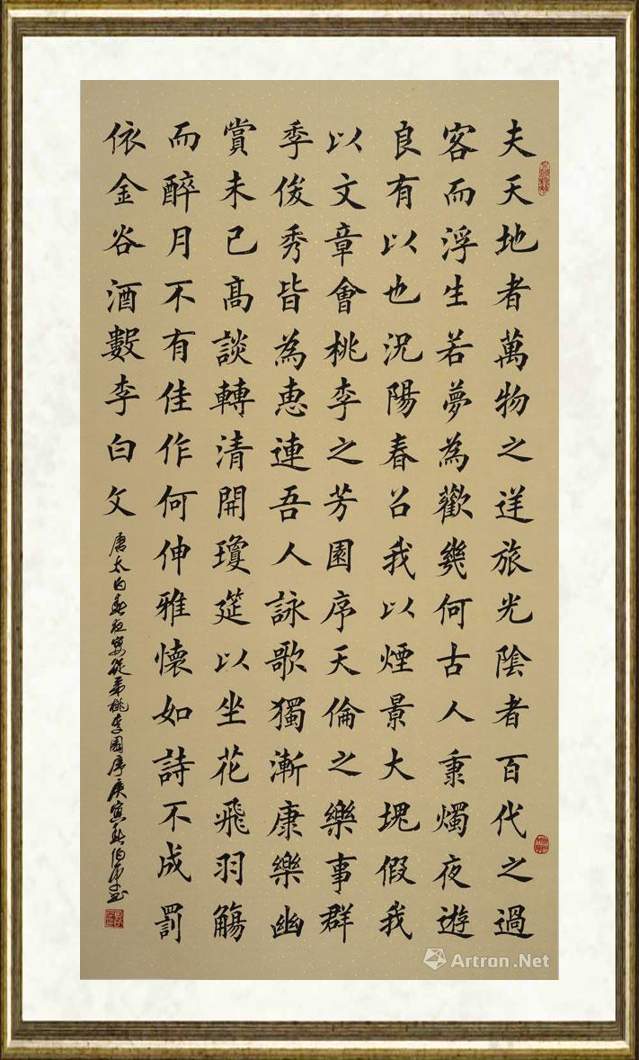 夫天地者萬物之逆旅光陰者百代之過
客而浮生若夢為歡幾何古人秉燭夜遊
良有以也況陽春召我以煙景大塊假我
以文章會桃李之芳園序天倫之樂事群
季俊秀皆為惠連吾人詠歌獨漸康樂幽
賞未已高談轉清開瓊筵以坐花飛羽觴
而醉月不有佳作何伸雅懷如詩不成罰
依金谷酒數李白文
唐太白春夜宴從弟桃李園序庚寅
Artron.Net